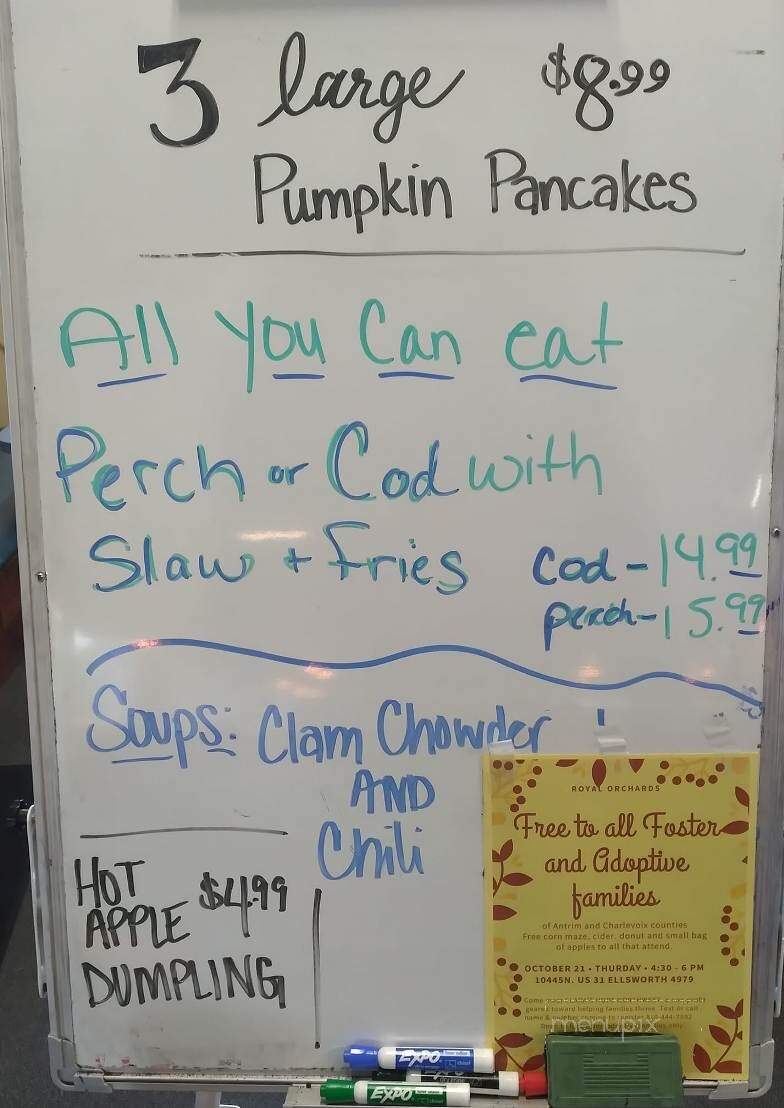 3 large $8.99
Pumpkin Pancakes
All You Can eat
Perch or Cod with
Slaw + Fries
Cod - 14.99
perch - 15.99
Soups: Clam Chowder
AND
Chili
HOT
APPLE $4.99
DUMPLING
ROYAL ORCHARDS
Free to all Foster
and Adoptive
families
of Antrim and Charlevoix counties
Free corn maze, cider, donut and small bag
of apples to all that attend.
OCTOBER 21 • THURDAY • 4:30 - 6 PM
10445N. US 31 ELLSWORTH 4979
Come
geared toward helping families thrive. Text or call
menupix
only
EXPO
EXPO
EXPO